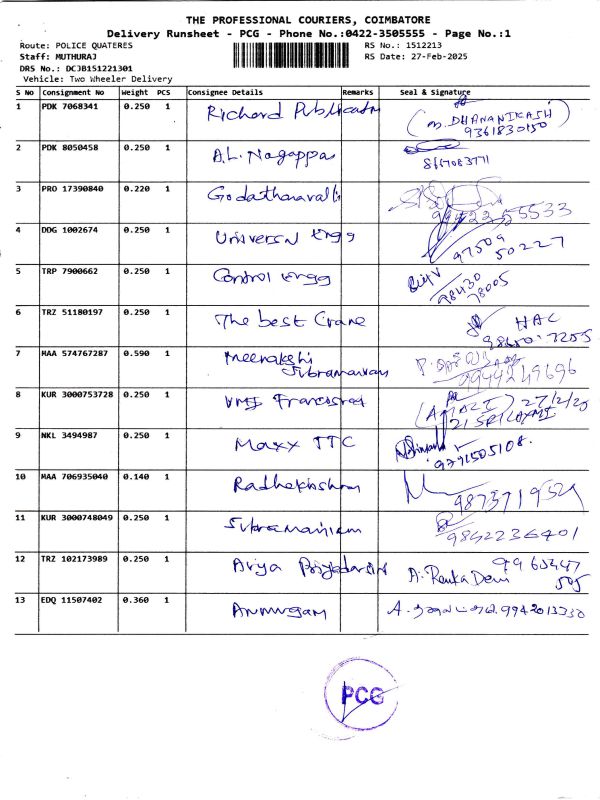 THE PROFESSIONAL COURIERS, COIMBATORE
Delivery Runsheet - PCG - Phone No.:0422-3505555 - Page No.:1
Route: POLICE QUATERES RS No.: 1512213
Staff: MUTHURAJ RS Date: 27-Feb-2025
DRS No.: DCJB151221301
Vehicle: Two Wheeler Delivery
S No Consignment No Weight PCS Consignee Details Remarks Seal & Signature
1 PDK 7068341 0.250 1 Richard Publication (M. DHANANIKASH)
9361830150
2 PDK 8050458 0.250 1 A.L. Nagappas
3 PRO 17390840 0.220 1 Godaithanavalli
4 DDG 1002674 0.250 1 Universal Engg 97509
50227
5 TRP 7900662 0.250 1 Control Engg 98430
78005
6 TRZ 51180197 0.250 1 The best Crane HAC
7 MAA 574767287 0.590 1 Meenakshi
Subramaniyam 9944249696
8 KUR 3000753728 0.250 1 VMJ 27/2/25
21 SRI LAXMI
9 NKL 3494987 0.250 1 Maxx TTC
9791505108.
10 MAA 706935040 0.140 1 Radhakrishnan
11 KUR 3000748049 0.250 1 Subramaniam
9842236401
12 TRZ 102173989 0.250 1 Ariya Priyadarsini A. Renka Devi 9965447
505
13 EDQ 11507402 0.360 1 Arumugam 9942013330
PCG